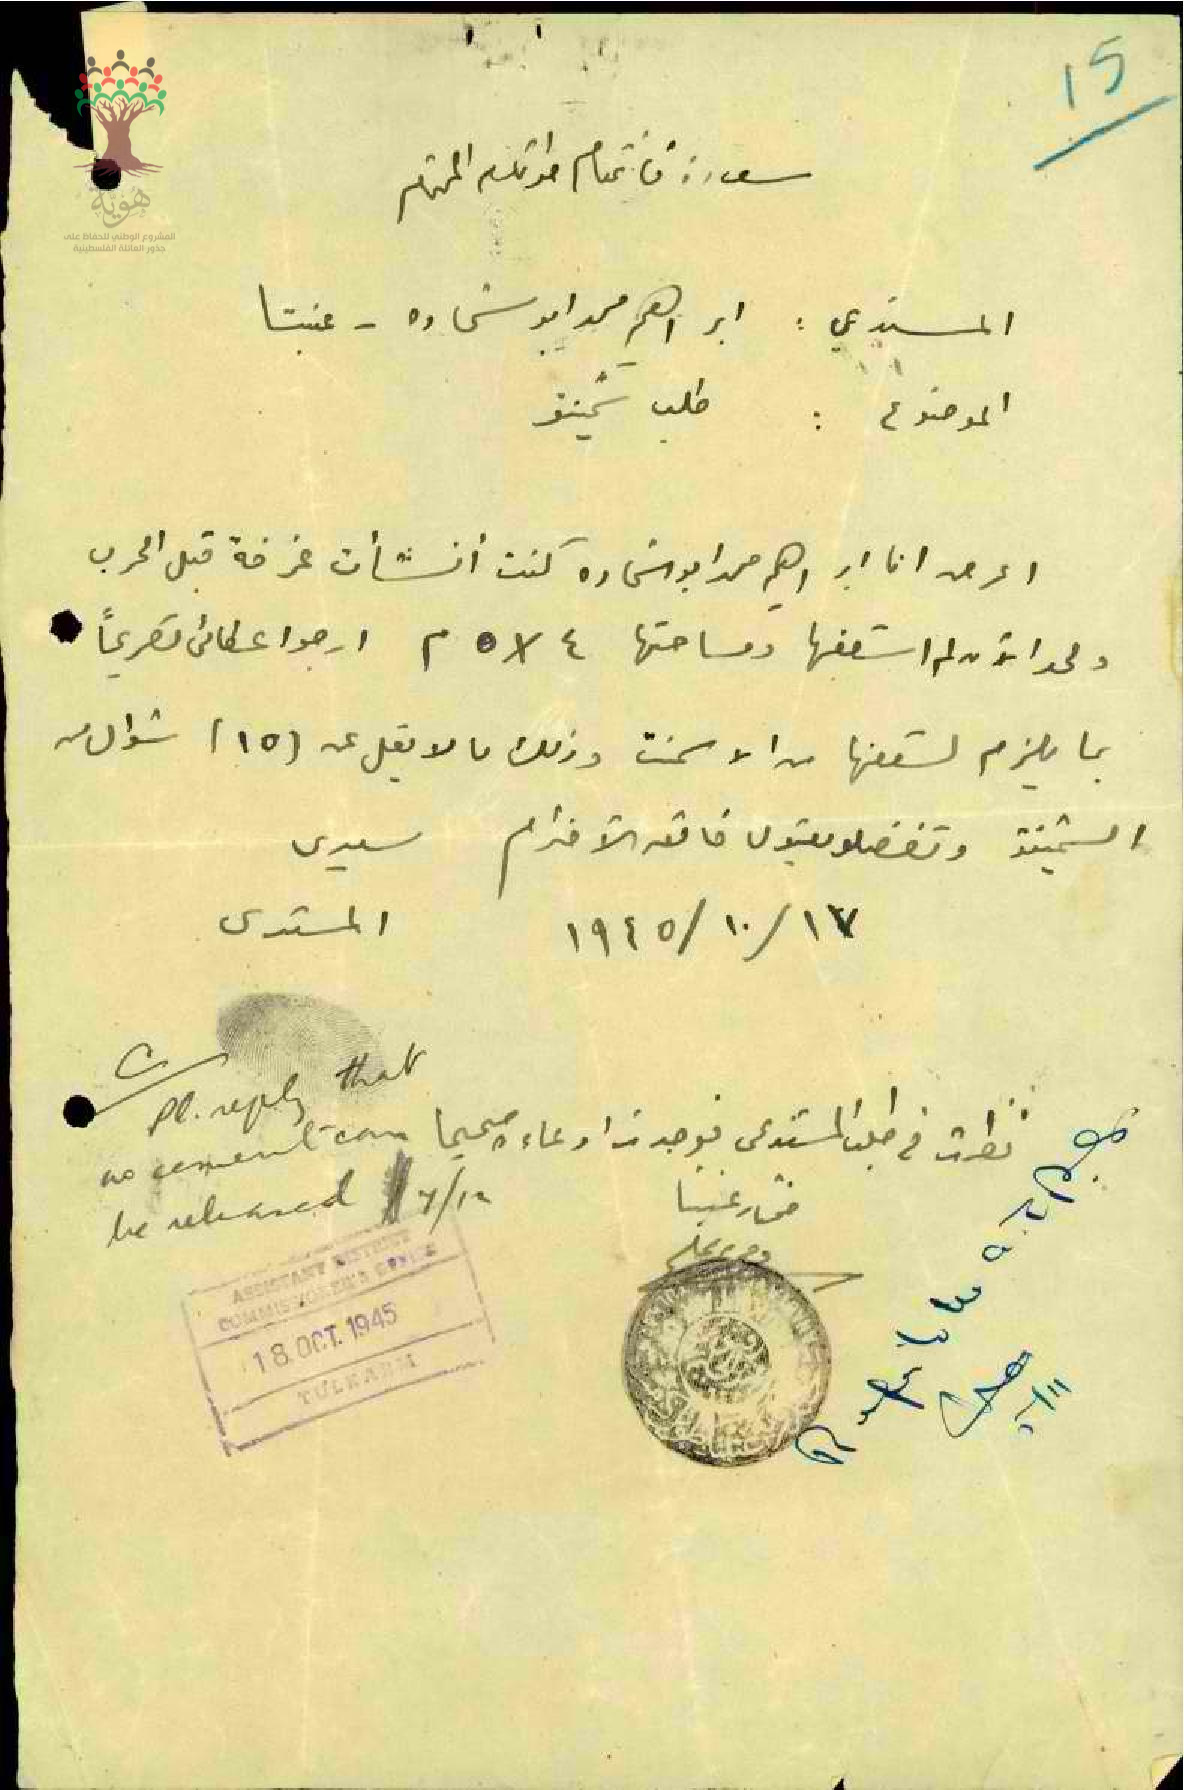 15
هوية
المشروع الوطني للحفاظ على
جذور العائلة الفلسطينية
سعادة قائمقام طولكرم المحترم
المستدعي : ابراهيم محمد ابو شحاده - عنبتا
الموضوع : طلب شمينتو
اعرض انا ابراهيم محمد ابو شحاده كنت أنشأت غرفة قبل الحرب
ولحد الآن لم اسقفها ومساحتها ٤ × ٥ م ارجوا اعطائي تصريحاً
بما يلزم لسقفها من الاسمنت وذلك ما لا يقل عن (١٥) شوال من
الشمينتو وتفضلو بقبول فائق الاحترام سيدي
١٧/١٠/١٩٤٥ المستدعي
Pl. reply that
no cement can
be released
نظرت في طلب المستدعي فوجدت ادعاءه صحيحا
مختار عنبتا
ASSISTANT DISTRICT
COMMISSIONER'S OFFICE
18 OCT. 1945
TULKARM